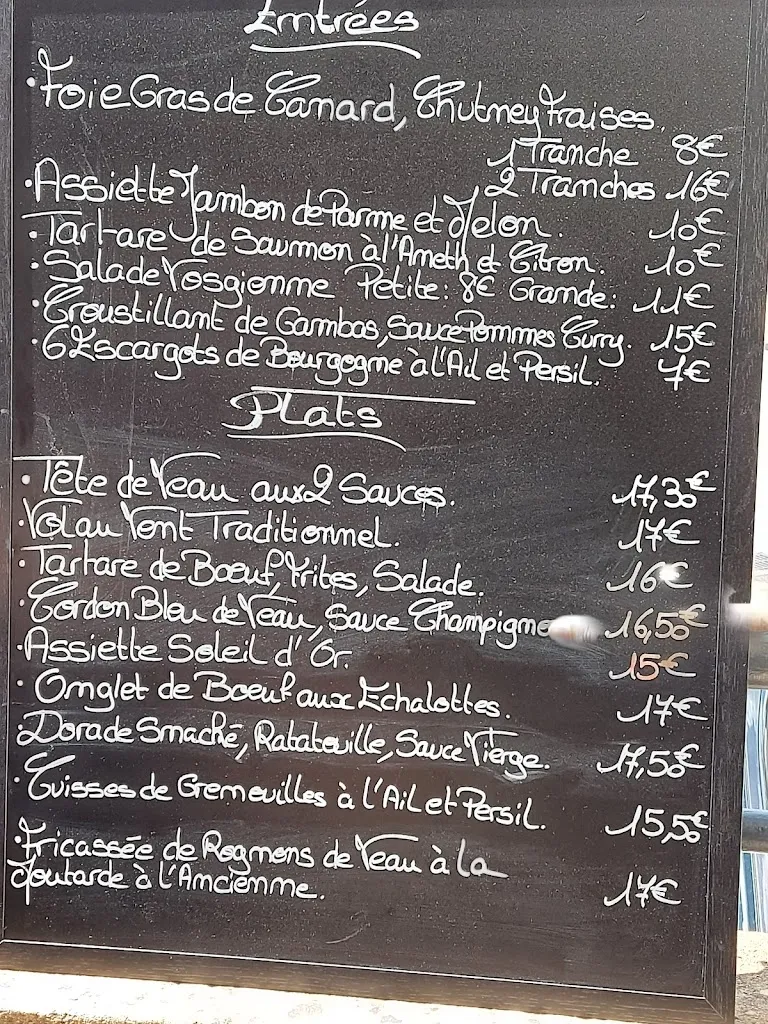 Entrées
· Foie Gras de Canard, Chutney Fraises.
1 Tranche 8€
2 Tranches 16€
· Assiette Jambon de Parme et Melon. 10€
· Tartare de Saumon à l'Aneth et Citron. 10€
· Salade Vosgienne Petite: 8€ Grande: 11€
· Croustillant de Gambas, Sauce Pommes Curry. 15€
· 6 Escargots de Bourgogne à l'Ail et Persil. 7€
Plats
· Tête de Veau aux 2 Sauces. 17,30€
· Vol au Vent Traditionnel. 17€
· Tartare de Boeuf, Frites, Salade. 16€
· Cordon Bleu de Veau, Sauce Champigno 16,50€
· Assiette Soleil d'Or. 15€
· Onglet de Boeuf aux Echalottes. 17€
Dorade Snacké, Ratatouille, Sauce Vierge. 17,50€
· Cuisses de Grenouilles à l'Ail et Persil. 15,50€
· Fricassée de Rognons de Veau à la
Moutarde à l'Ancienne. 17€